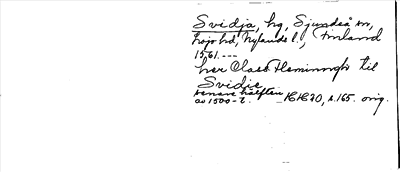 Svidja, hg, Sjundeå sn,
Lojo hd, Nylands l., Finland
1561. ---
her Claes Flemingh til
Svidie
senare hälften
av 1500-t. s.165. orig.